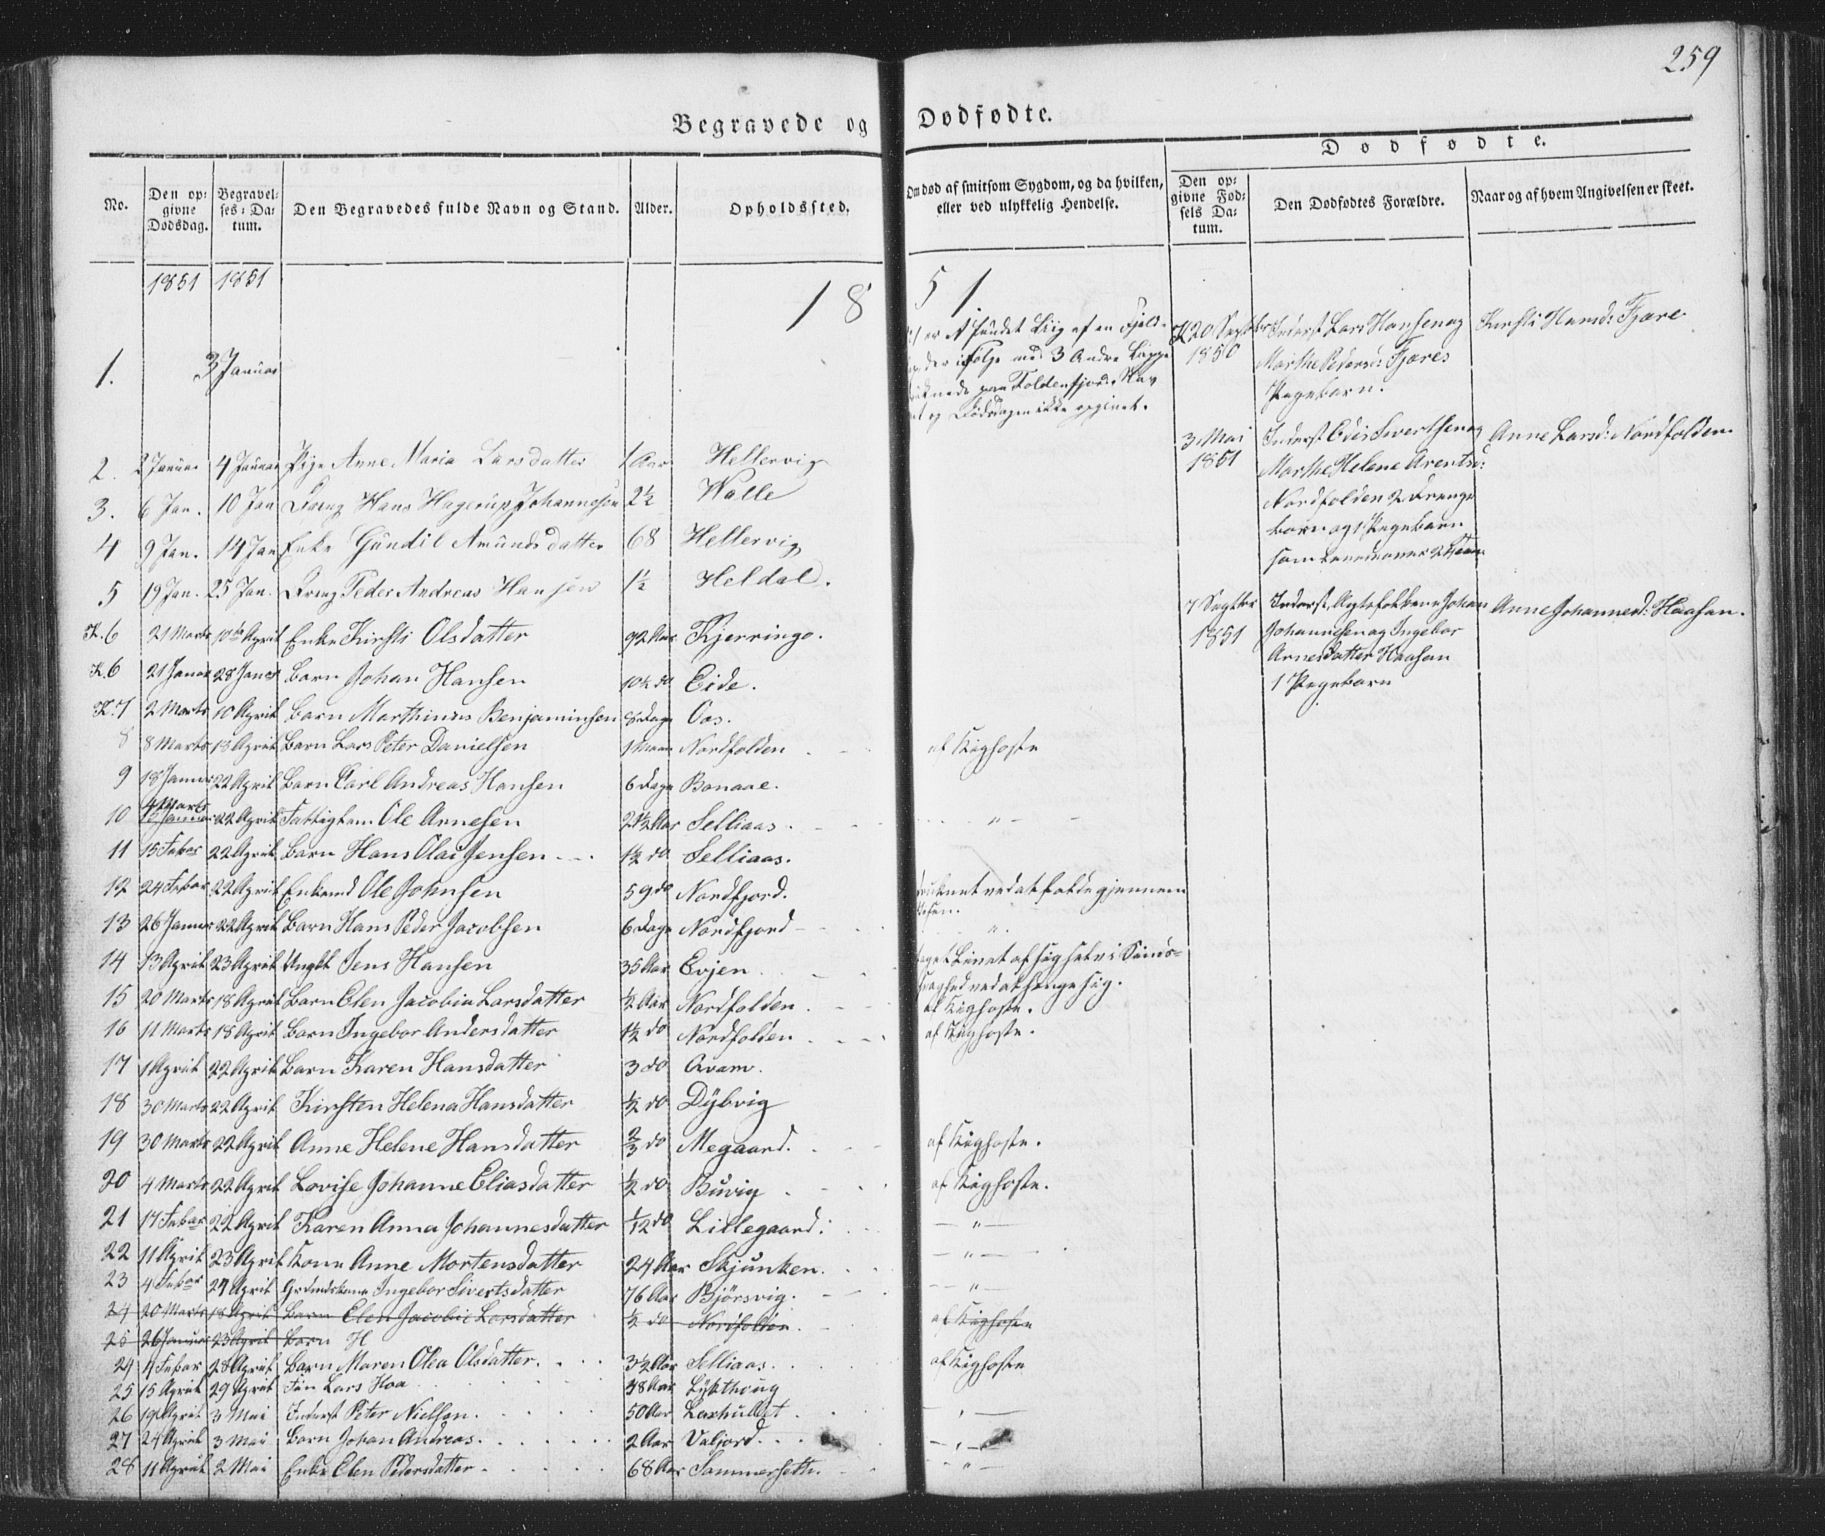 259
Begravede og Dødfødte.
Dødfødte.
No.
Den opgivne Dødsdag.
Begravelses-Datum.
Den Begravedes fulde Navn og Stand.
Alder.
Opholdssted.
Om død af smitsom Sygdom, og da hvilken, eller ved ulykkelig Hendelse.
Den opgivne Fødsels Datum.
Den Dødfødtes Forældre.
Naar og af hvem Angivelsen er skeet.
1851 1851
18 51.
1. 3 Januar
2. 2 Januar 4 Januar Pige Anne Maria Larsdatter 1 Aar Hellervig
3. 6 Jan. 10 Jan Dreng Hans Hagerup Johannesen 2½ Walle
4 9 Jan. 14 Jan Enke Gundil Amundsdatter 68 Hellervig
5 19 Jan. 25 Jan. Dreng Peder Andreas Hansen 1½ Heldal.
K. 6 21 Marts 10de April Enke Kirsti Olsdatter 92 Aar Kjerringø.
K. 6 21 Januar 28 Januar Barn Johan Hansen 10½ do Eide.
K. 7 2 Marts 10 April Barn Marthinus Benjaminsen 8 Dage Oas.
8 8 Marts 18 April Barn Lars Peter Danielsen 1 Maan Nordfolden af Kighoste
9 18 Januar 22 April Barn Carl Andreas Hansen 6 Dage Bonaae.
10 4 Marts 22 April Fattiglem Ole Arnesen 2½ Aar Selliaas. "
11 15 Febar 22 April Barn Hans Olai Jensen 1½ do Selliaas.
12 24 Febar 22 April Enkemd Ole Johnsen 59 do Nordfjord. druknet ved at falde gjennem Isen.
13 26 Januar 22 April Barn Hans Peder Jacobsen 6 Dage Nordfjord "
14 13 April 23 April Ungkl Jens Hansen 35 Aar Evjen taget Livet af sig selv i Sindssvaghed ved at hænge sig.
15 20 Marts 18 April Barn Elen Jacobia Larsdatter ½ Aar Nordfolden. af Kighoste.
16 11 Marts 18 April Barn Ingebor Andersdatter 1½ do Nordfolden. af Kighoste.
17 1 April 22 April Barn Karen Hansdatter 3 do Qvam.
18 30 Marts 22 April Kirsten Helena Hansdatter ½ do Dybvig
19 30 Marts 22 April Anne Helene Hansdatter ⅔ do Megaard. af Kighoste.
20 4 Marts 22 April Lovise Johanne Eliasdatter ½ do Buvig af Kighoste.
21 17 Febar 22 April Karen Anna Johannesdatter 1/12 do Lillegaard. "
22 11 April 23 April Kone Anne Mortensdatter 24 Aar Skjunken. "
23 4 Febar 27 April Ingebor Sivertsdatter 76 Aar Bjørsvig. "
24 20 Marts 18 April Barn Elen Jacobia Larsdatter ½ do Nordfolden. af Kighoste
25 26 Januar 23 April Barn H
24 4 Febar 28 April Barn Maren Olea Olsdatter. 3½ Aar Selliaas. af Kighoste
25 15 April 29 April Fin Lars Hoa 38 Aar
26 19 April 3 Mai Inderst Peter Nielsen. 50 Aar Laxhullet "
27 24 April 3 Mai Barn Johan Andreas. 2 Aar Valjord. "
28 11 April 2 Mai Enke Elen Pedersdatter 68 Aar Sommerset "
er et fundet Liig af en Fjeld-
ifølge med 3 Andre
druknede paa Foldenfjord. Nav
et og Dødsdagen ikke opgivet.
K 20 Septbr 1850
Inderst Lars Hansen og
Marthe Pedersd: Fjæres
Pigebarn.
Kirsti Hansd: Fjære
3 Mai 1851
Inderst Edis Sivertsen og
Marthe Helene Arentsd:
Nordfolden 2 Drenge
børn og 1 Pigebarn
Anne Larsd: Nordfolden.
7 Septbr 1851
Inderst, Ægtefolkene Johan
Johannesen og Ingebor
Arnesdatter Haasan
1 Pigebarn
Anne Johannesd: Haasan.